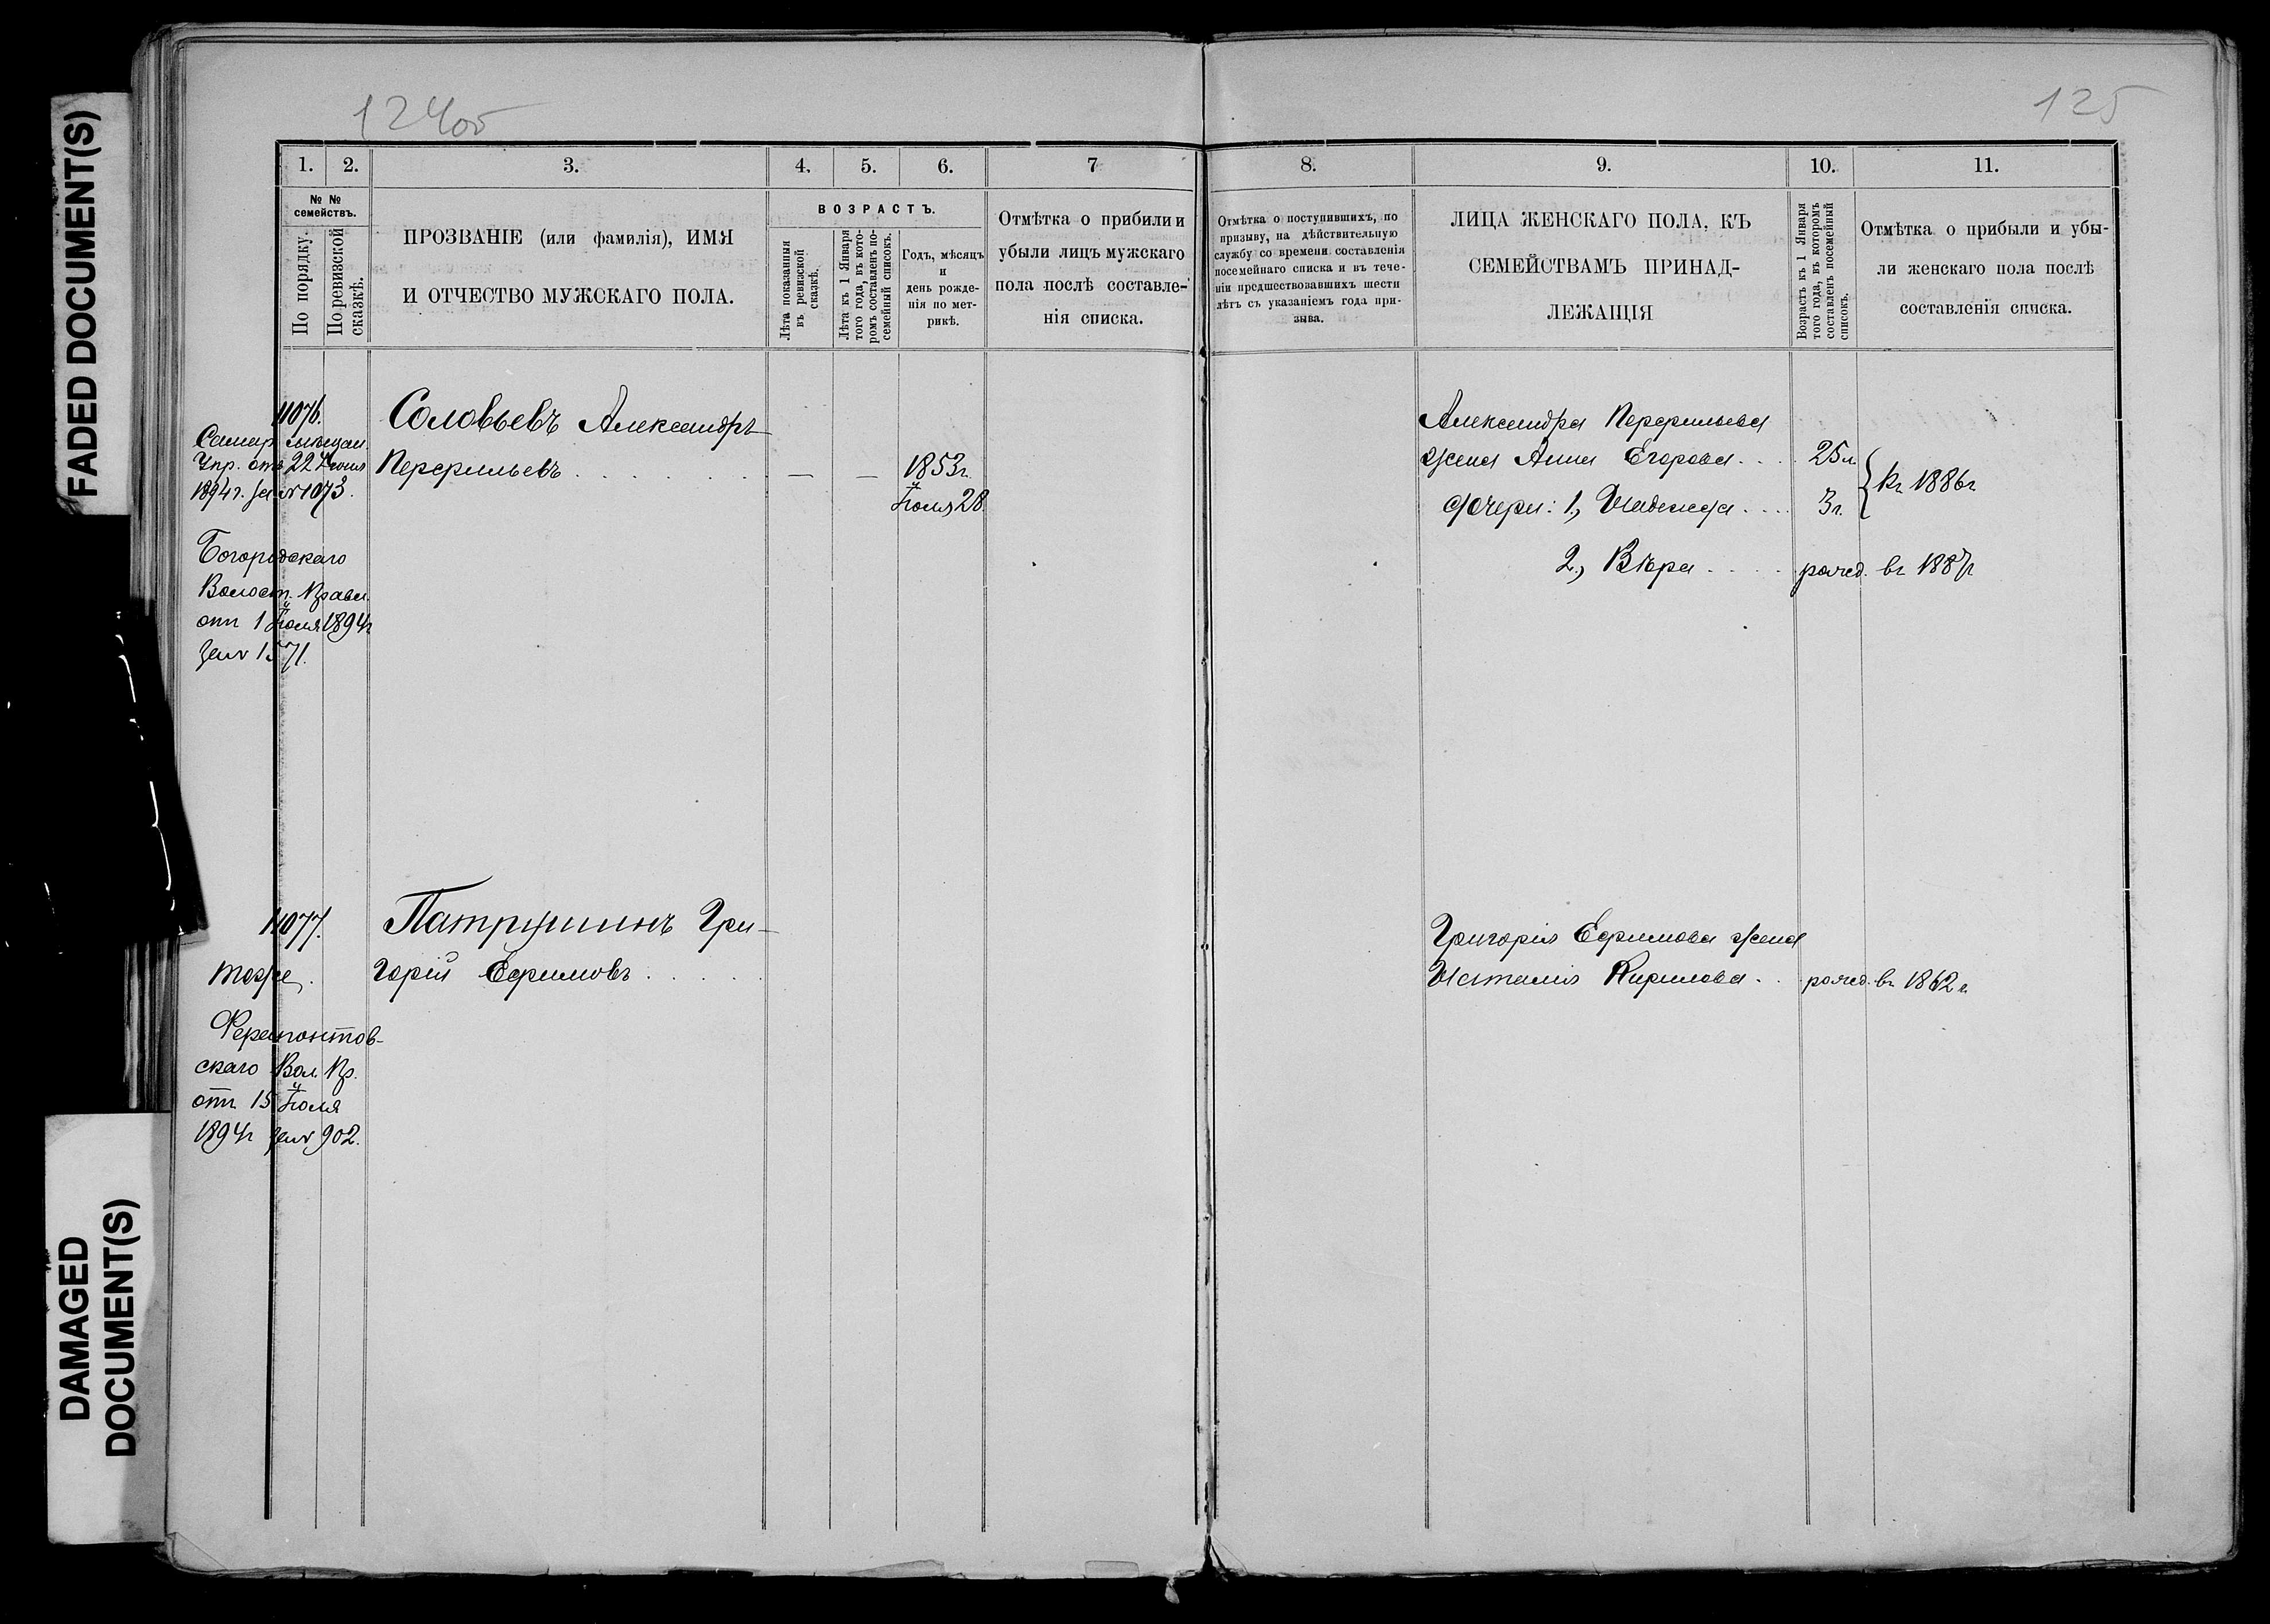 FADED DOCUMENT(S)
DAMAGED
DOCUMENT(S)
124об
125
1.
2.
3.
4.
5.
6.
7
8.
9.
10.
11.
№ №
семействъ.
По порядку.
По ревизской
сказкѣ.
ПРОЗВАНІЕ (или фамилія), ИМЯ
И ОТЧЕСТВО МУЖСКАГО ПОЛА.
ВОЗРАСТЪ.
Лѣта показанія
въ ревизской
сказкѣ.
Лѣта къ 1 Января
того года, въ кото-
ромъ составленъ по-
семейный списокъ.
Годъ, мѣсяцъ
и
день рожде-
нія по мет-
рикѣ.
Отмѣтка о прибили и
убыли лицъ мужскаго
пола послѣ составле-
нія списка.
Отмѣтка о поступившихъ, по
призыву, на дѣйствительную
службу со времени составленія
посемейнаго списка и въ тече-
ніи предшествовавшихъ шести
лѣтъ съ указаніемъ года при-
зыва.
ЛИЦА ЖЕНСКАГО ПОЛА, КЪ
СЕМЕЙСТВАМЪ ПРИНАД-
ЛЕЖАЩІЯ
Возрастъ къ 1 Января
того года, въ которомъ
составленъ посемейный
списокъ.
Отмѣтка о прибыли и убы-
ли женскаго пола послѣ
составленія списка.
11076.
Самар. мѣщан.
Упр. отъ 22 Іюня
1894 г. за № 1073.
Богородскаго
Волост. Правл.
отъ 1 Іюля 1894 г
за № 1571.
Соловьевъ Александръ
Перфильевъ . . . . . .
— —
1853 г.
Іюля 28
Александра Перфильева
жена Анна Егорова . . . 25 л.
дочери: 1., Надежда . . . . 3 г.
къ 1886 г
2., Вѣра . . . . рожд. въ 1887 г
11077.
тоже.
Ферапонтов-
скаго Вол. Пр.
отъ 15 Іюля
1894 г за № 902.
Патрушинъ Гри-
горій Ефимовъ . . . .
Григорія Ефимова жена
Наталія Кирилова . . рожд. въ 1862 г.